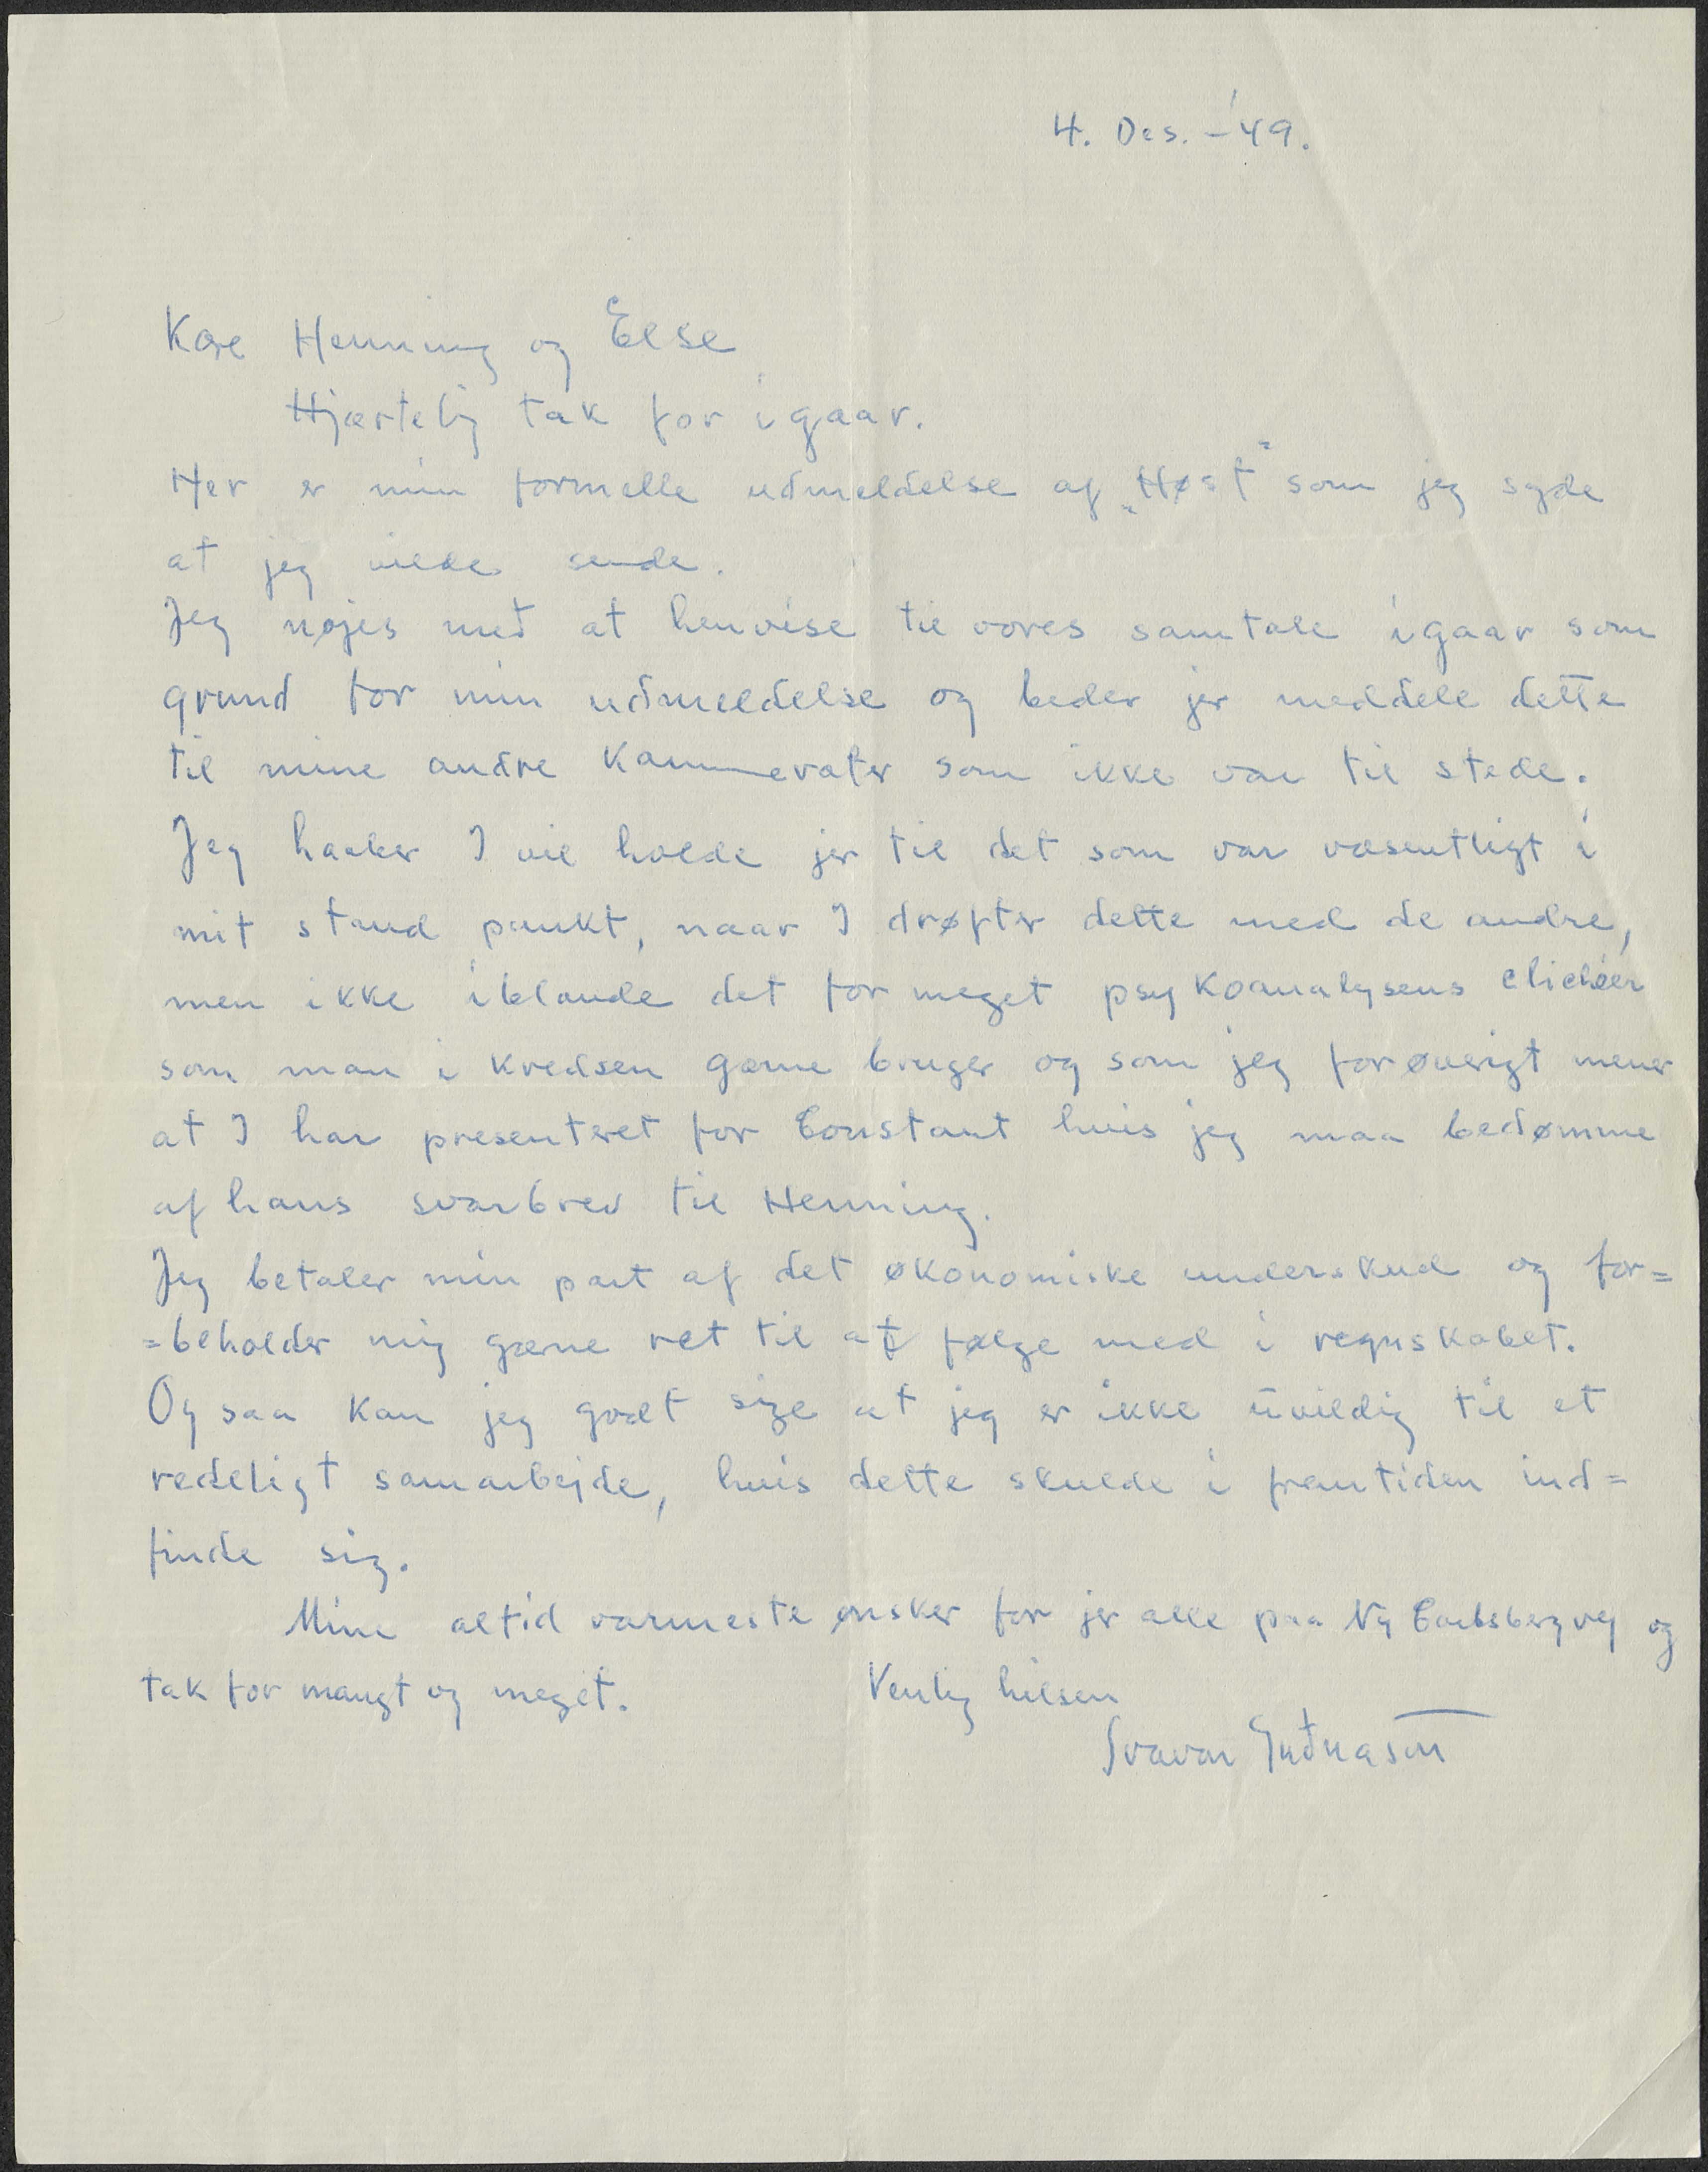 4. Des. - '49.
Kære Henning og Else
Hjærtelig tak for igaar.
Her er min formelle udmeldelse af „Høst“ som jeg sagde
at jeg vilde sende.
Jeg nøjes med at henvise til vores samtale igaar som
grund for min udmeldelse og beder jer meddele dette
til mine andre Kammerater som ikke var til stede.
Jeg haaber I vil holde jer til det som var væsentligt i
mit stand punkt, naar I drøfter dette med de andre,
men ikke iblande det for meget psykoanalysens clichéer
som man i kredsen gærne bruger og som jeg forøverigt mener
at I har presenteret for Constant hvis jeg maa bedømme
af hans svarbrev til Henning.
Jeg betaler min part af det økonomiske underskud og for=
=beholder mig gærne ret til at følge med i regnskabet.
Og saa kan jeg godt sige at jeg er ikke uvildig til et
redeligt samarbejde, hvis dette skulde i fremtiden ind=
finde sig.
Mine altid varmeste ønsker for jer alle paa Ny Carlsbergvej og
tak for mangt og meget.
Venlig hilsen
Svavar Guðnason